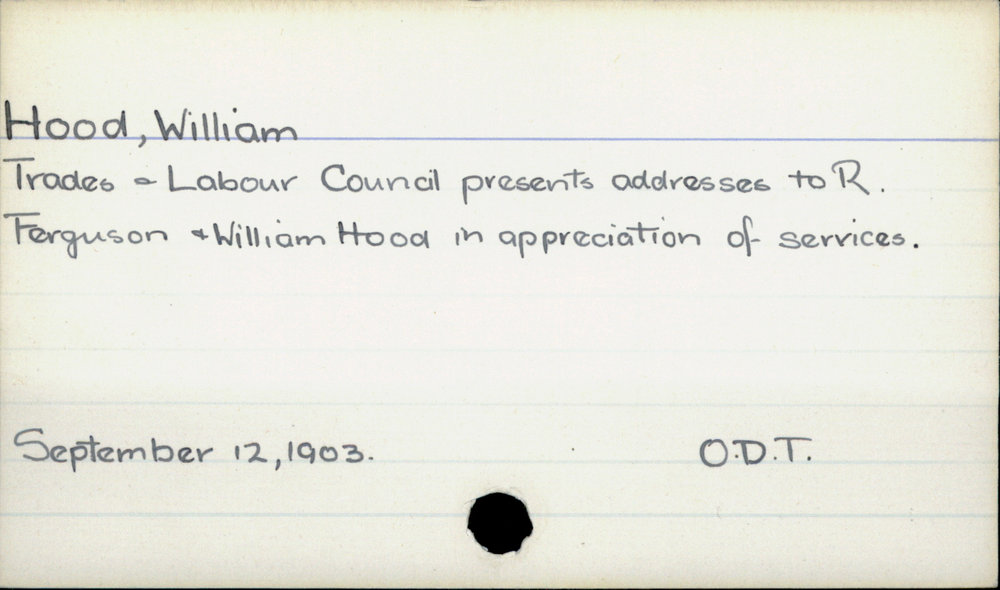 Hood, William
Trades & Labour Council presents addresses to R.
Ferguson & William Hood in appreciation of services.
September 12, 1903.
O.D.T.